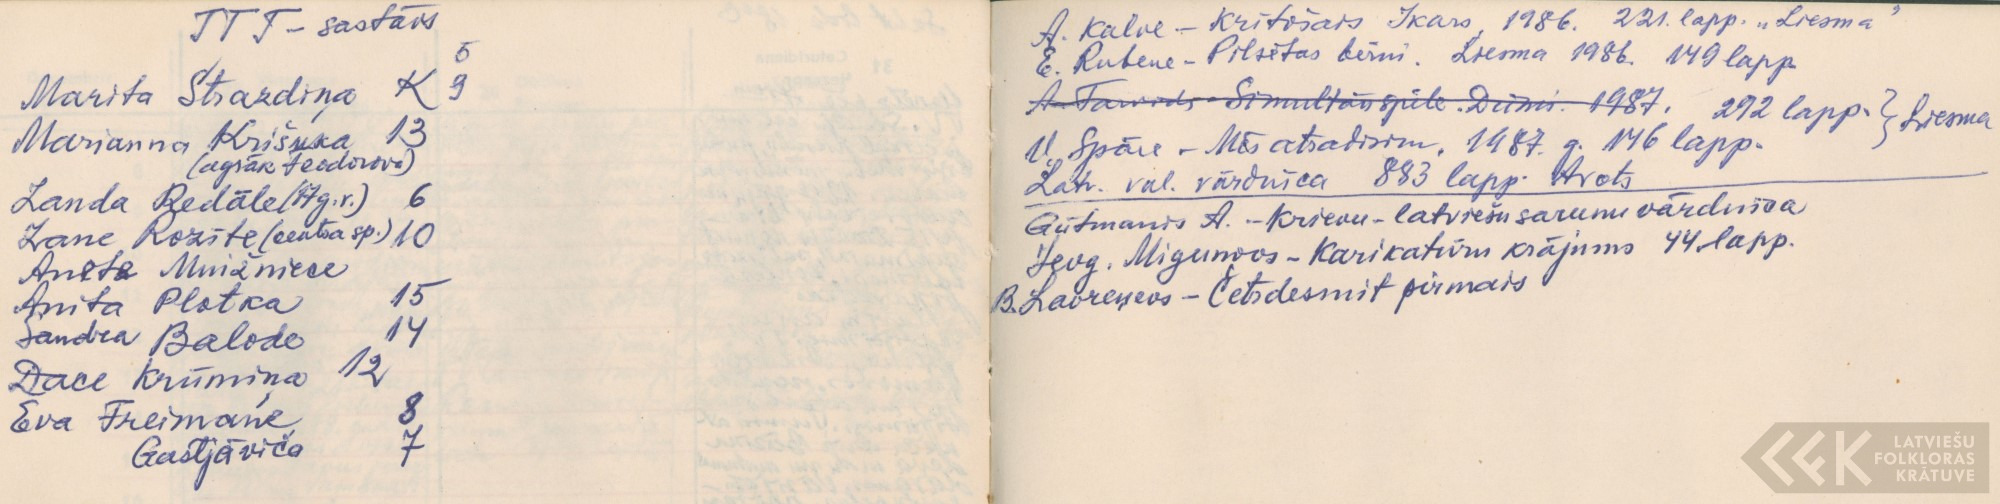 TTT - sastāvs
5
Marita Strazdiņa K 9
Marianna Krišuka 13
(agrāk Feodorova)
Landa Redāle (47g.r.) 6
Lane Rozīte (centra sp.) 10
Anete Mnižniece
Anita Plotka 15
Sandra Balode 14
Dace Krūmiņa 12
Eva Freimane 8
Gastjāviča 7
A. Kalve - Krītošais Ikars, 1986. 221. lapp. „Liesma"
E. Rubene - Pilsētas bērni. Liesma 1986. 149 lapp
A. Simultānspēle. 1987. 292 lapp. } Liesma
V. Spāre - Mēs atradīsim. 1987. g. 146 lapp.
Latv. val. vārdnīca 883 lapp. Avots
Gūtmanis A. - Krievu-latviešu sarunu vārdnīca
Jevg. Migunovs - Karikatūru krājums 44 lapp.
B. Lavreņevs - Četrdesmit pirmais
LATVIEŠU
FOLKLORAS
KRĀTUVE